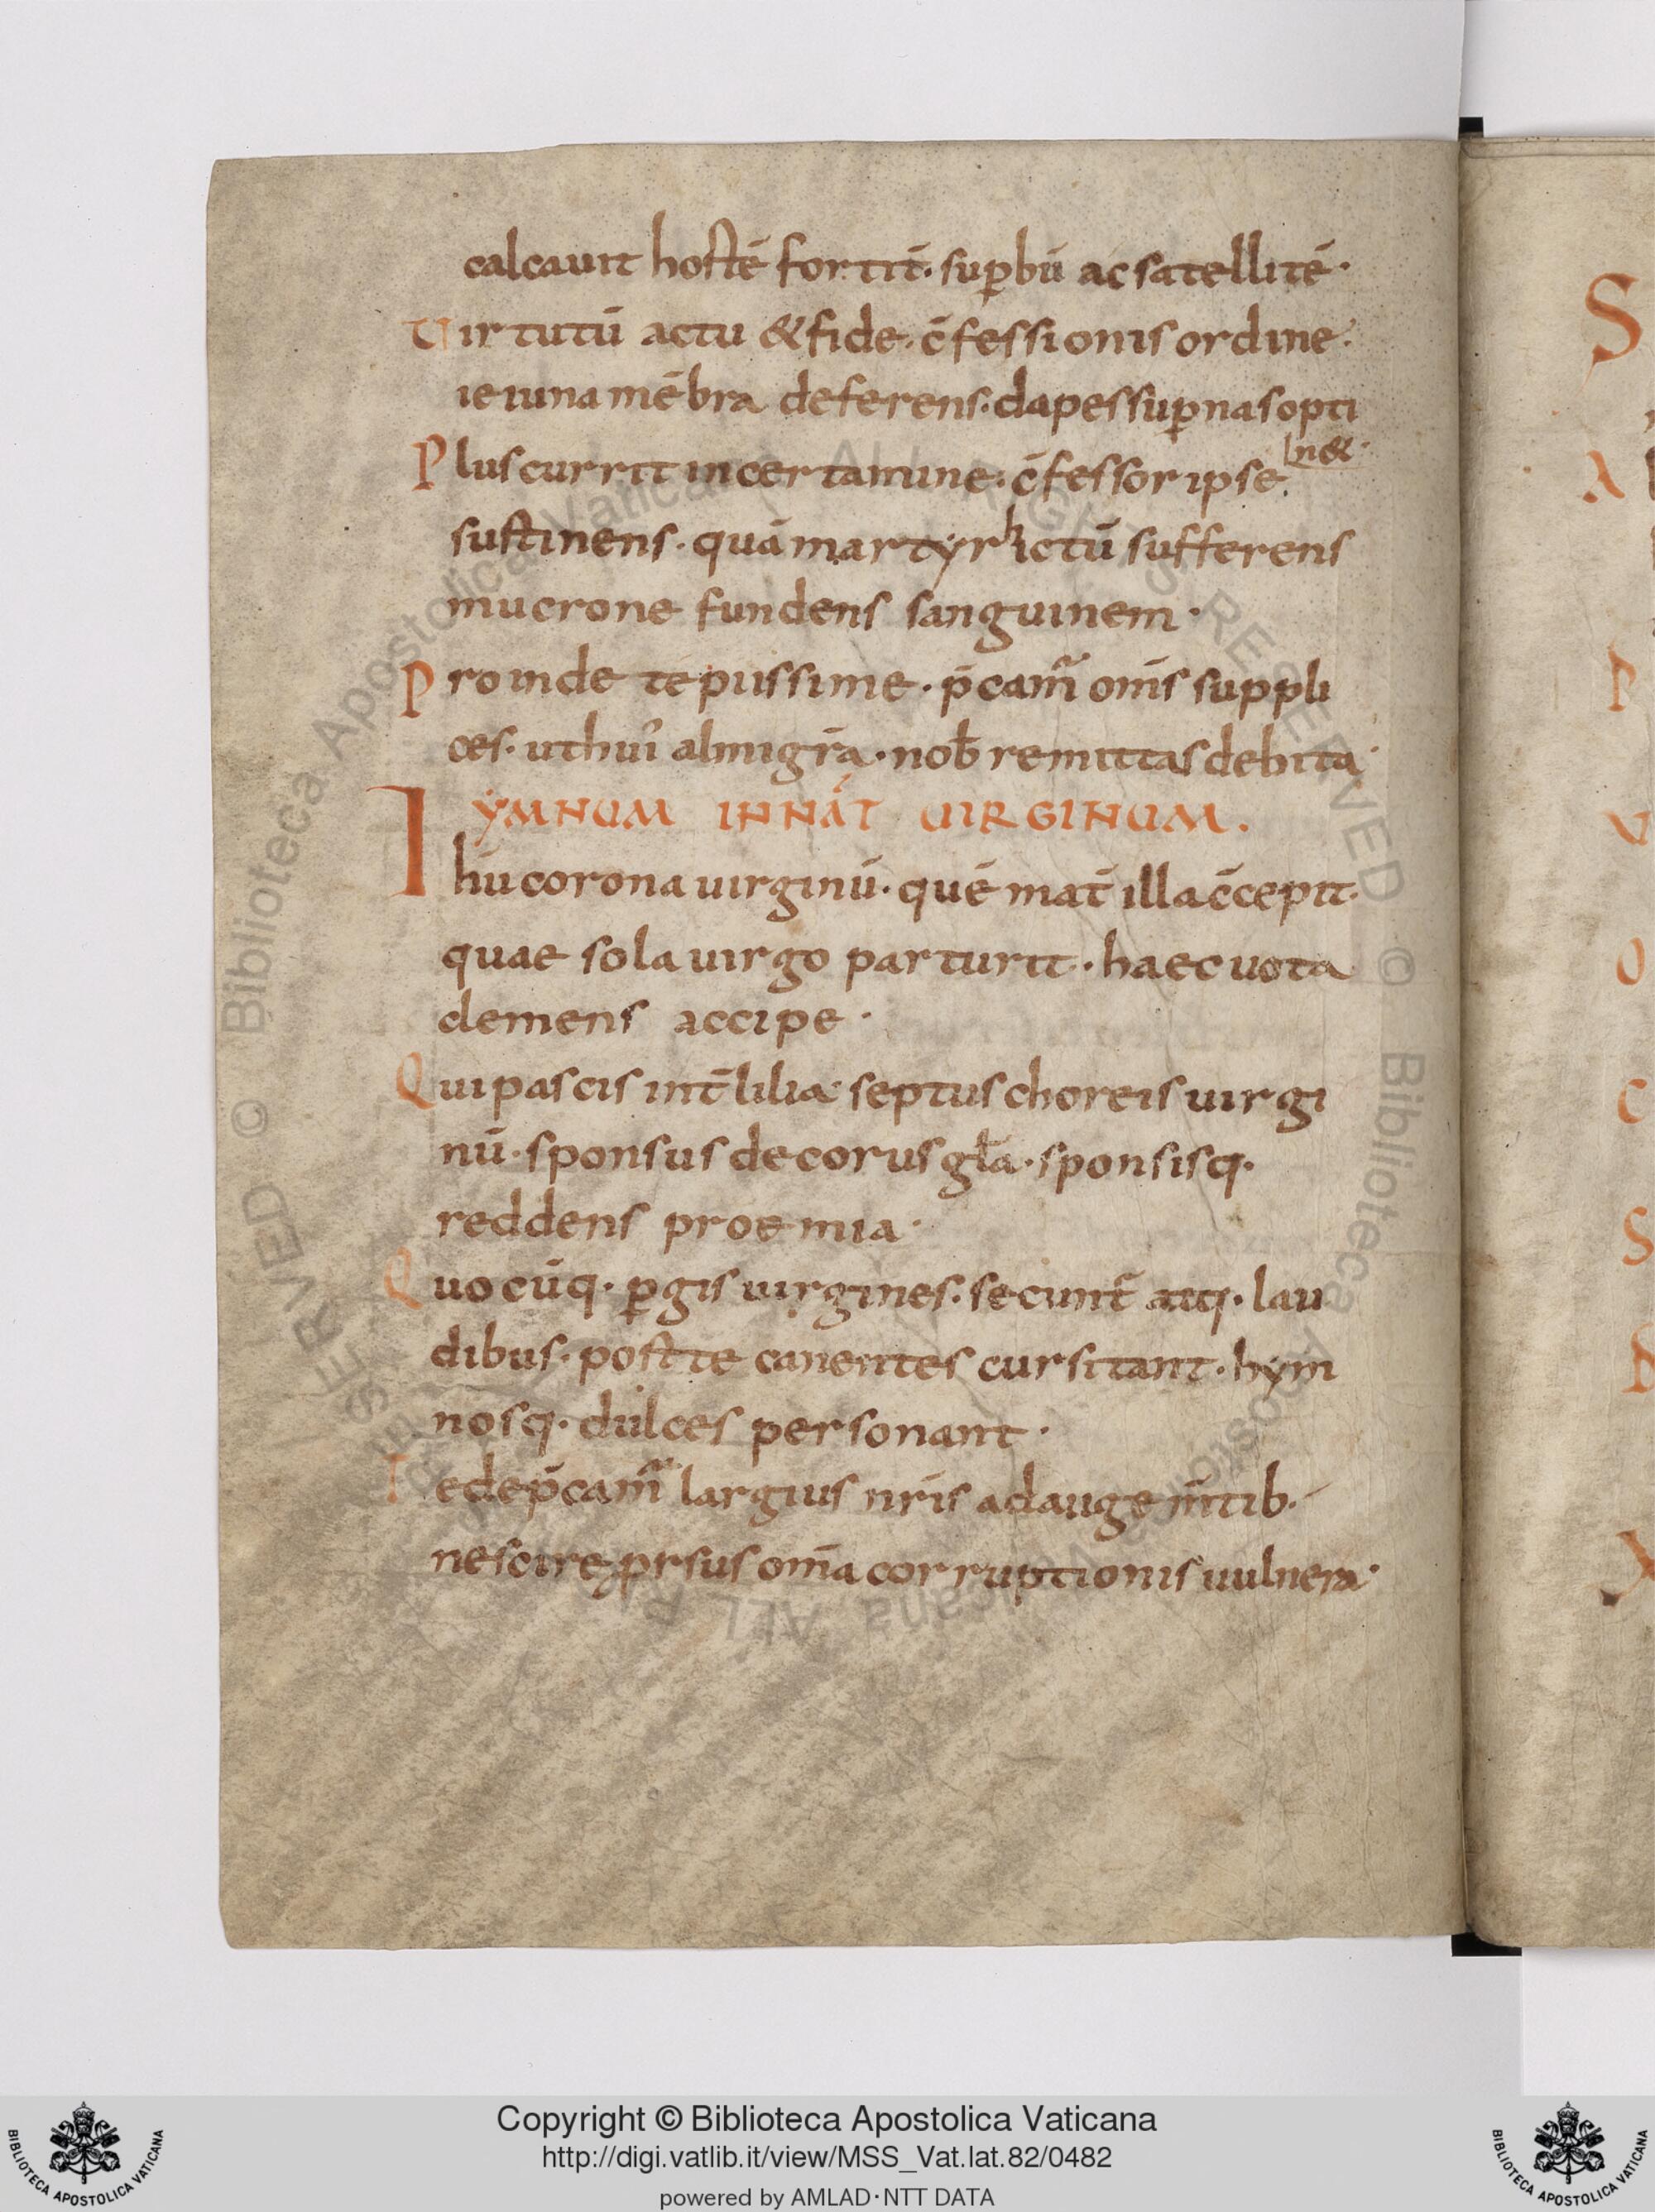 calcauit hostē fortit̄· suꝑbū ac satellitē·
Uirtutū actu & fide· c̄fessionis ordine·
ieiuna mēbra deferens· dapes suꝑnas opti
n&·
Plus currit in certamine· c̄fessor ipse·
sustinens· quā martyr hictū sufferens
mucrone fundens sanguinem·
Proinde te piissime· p̄camr̄ om̄s suppli
ces· ut hui' almi gr̄a· nob̄ remittas debita·
YMNUM IN NAT̄ UIRGINUM.
Ihū corona uirginū· quē mat̄ illa c̄cepit·
quae sola uirgo parturit· haec uota
clemens accipe·
Qui pascis int̄ lilia· septus choreis uirgi
nū· sponsus decorus gl̄a· sponsisq·
reddens proemia·
Quocūq· ꝑgis uirgines· secunt̄ atq· lau
dibus· post te canentes cursitant· hym
nosq· dulces personant·
Te dep̄camr̄ largius nr̄is adauge m̄tib·
nescire prsus om̄a corruptionis uulnera·
S
A
P
U
O
C
S
X
Copyright © Biblioteca Apostolica Vaticana
http://digi.vatlib.it/view/MSS_Vat.lat.82/0482
powered by AMLAD·NTT DATA
BIBLIOTECA APOSTOLICA VATICANA
BIBLIOTECA APOSTOLICA VATICANA